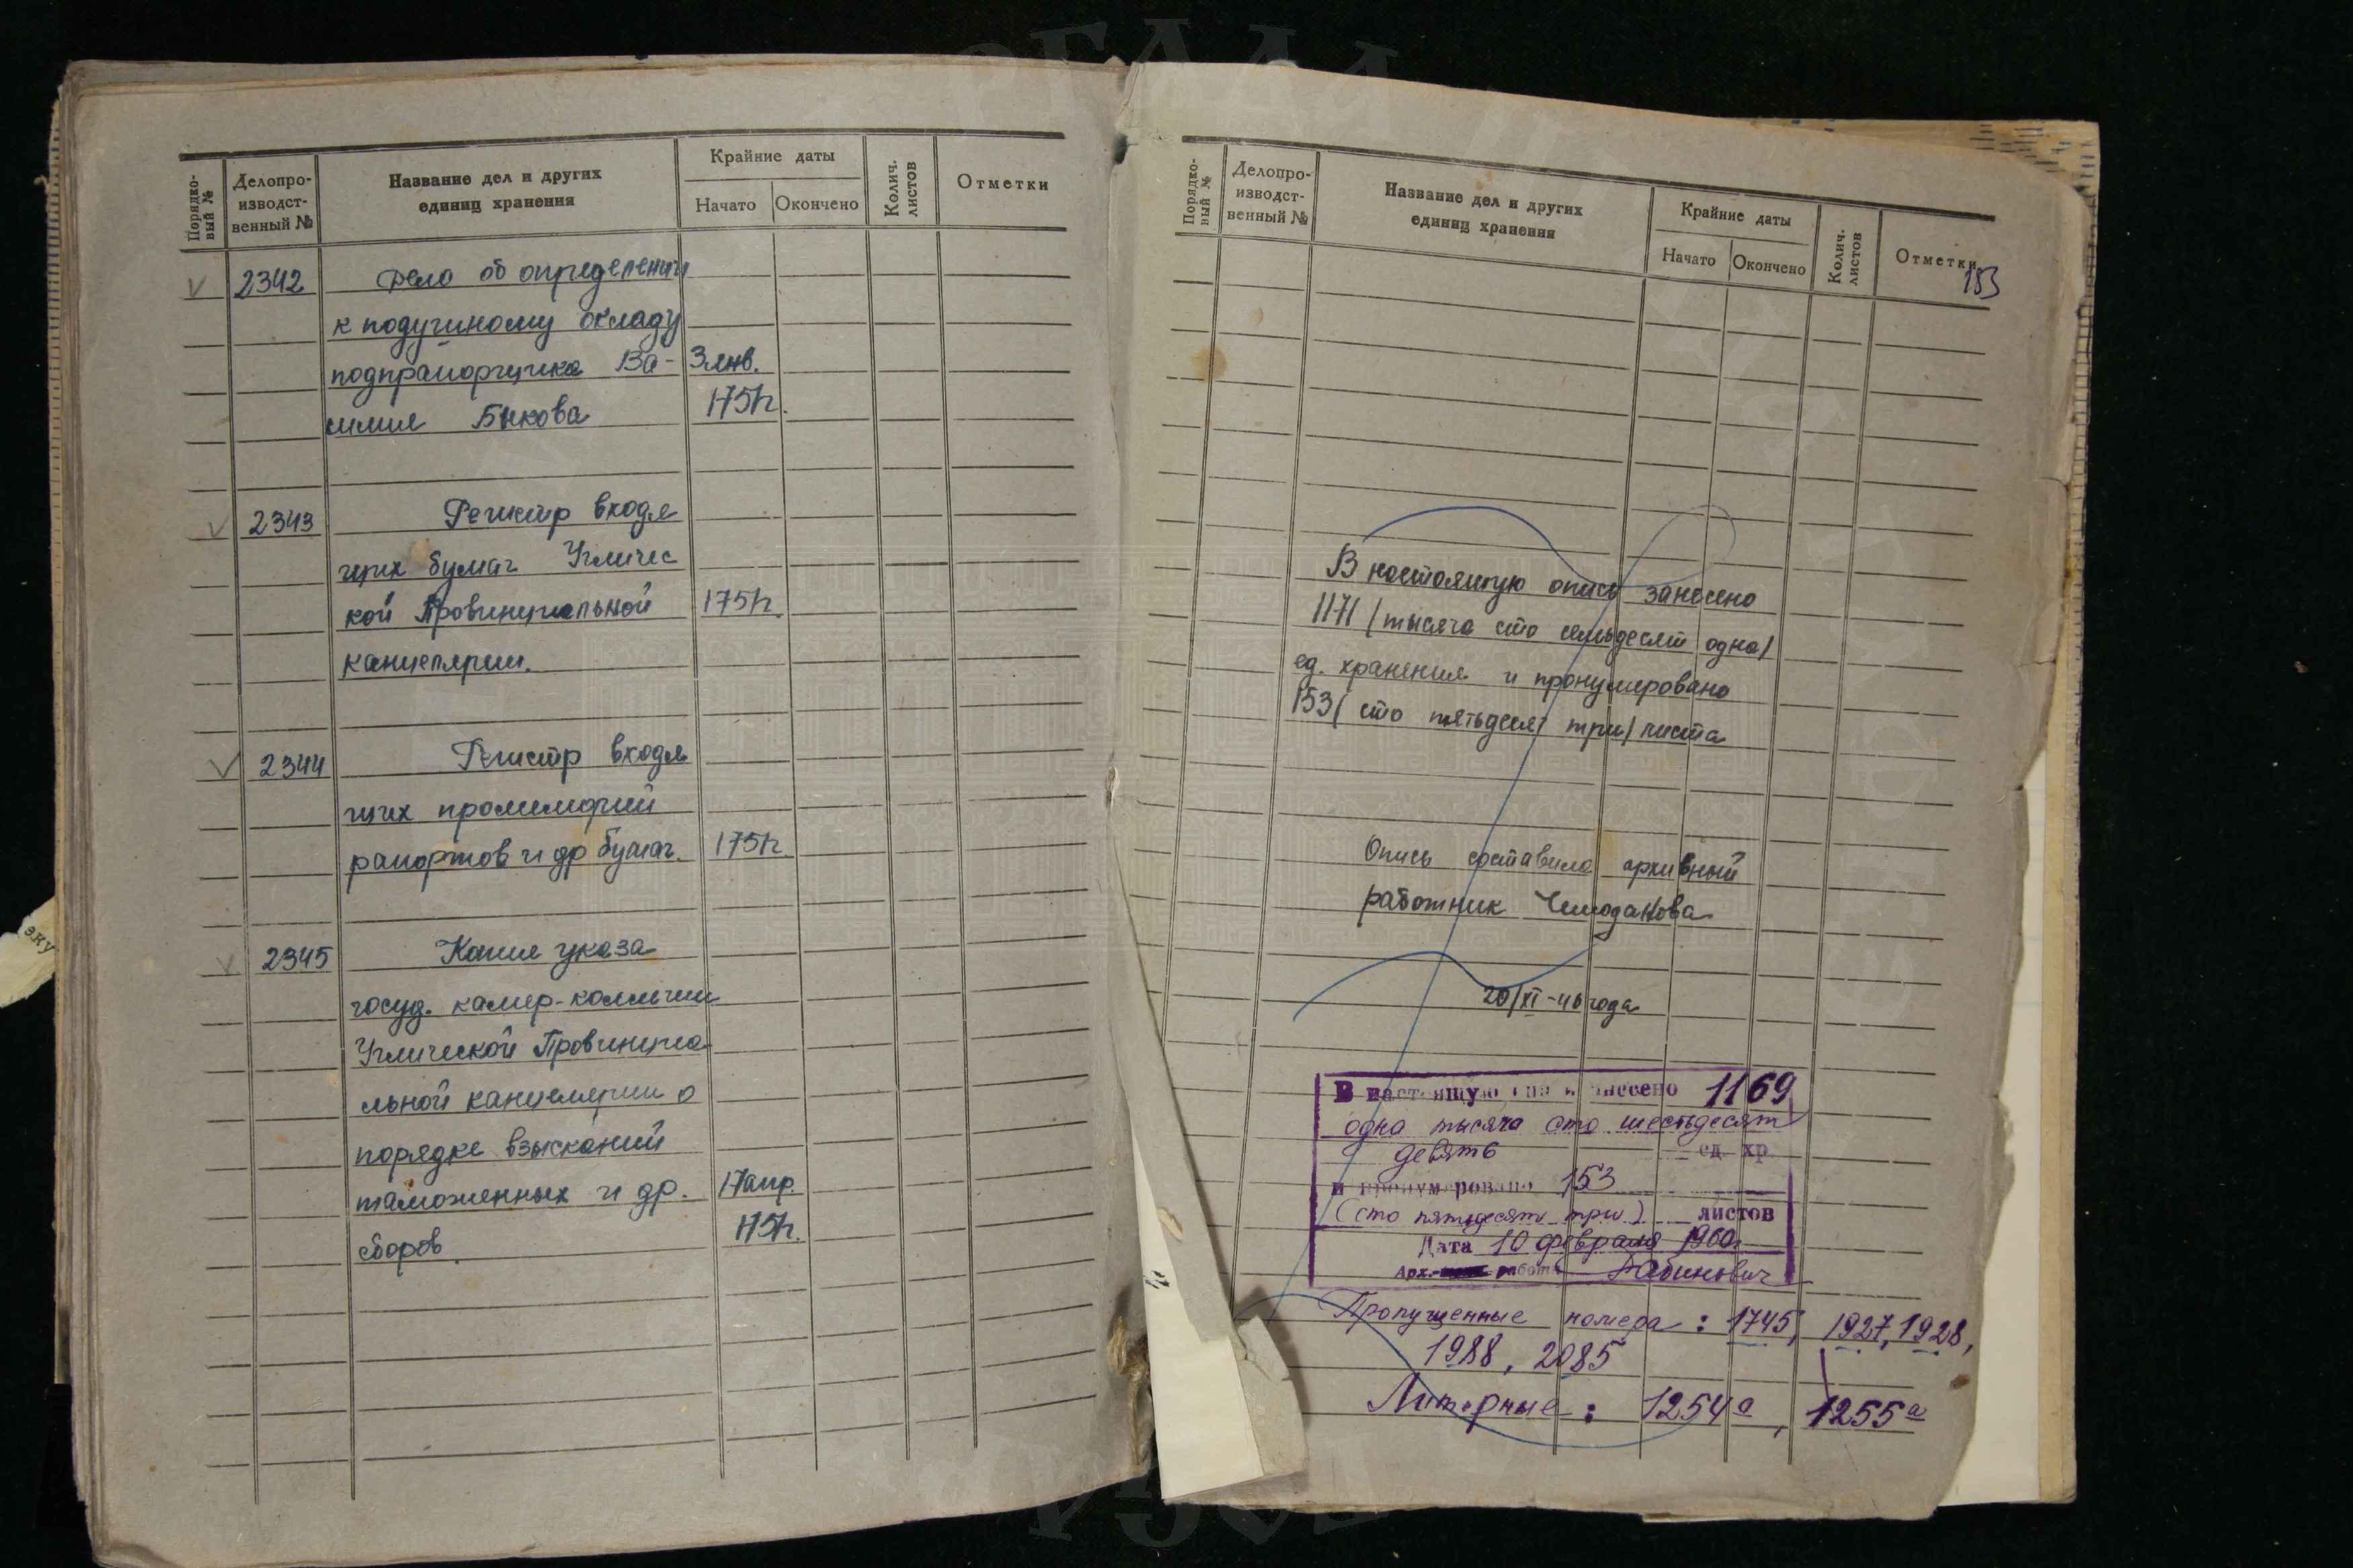 Порядко-
вый №
Делопро-
изводст-
венный №
Название дел и других
единиц хранения
Крайние даты
Начато
Окончено
Колич.
листов
Отметки
2342 Дело об определении
к подушному окладу
подпрапорщика Ва- 3 янв.
силия Быкова 175
2343 Регистр входя
щих бумаг Угличес
кой Провинциальной 175
канцелярии.
2344 Регистр входя
щих промеморий
рапортов и др бумаг. 175
2345 Копия указа
госуд. камер-коллегии
Углической Провинциа
льной канцелярии о
порядке взысканий
таможенных и др. 17 апр.
сборов. 175
Порядко-
вый №
Делопро-
изводст-
венный №
Название дел и других
единиц хранения
Крайние даты
Начато
Окончено
Колич.
листов
Отметки
153
В настоящую опись занесено
1171 /тысяча сто семьдесят одна/
ед. хранения и пронумеровано
153 /сто пятьдесят три/ листа
Опись составила архивный
работник Чемоданова
20/XI-46 года
В настоящую опись внесено 1169
одна тысяча сто шестьдесят
девять ед. хр.
и пронумеровано 153
(сто пятьдесят три) листов
Дата 10 февраля 1960г.
Арх. работн. Рабинович
Пропущенные номера: 1745, 1927, 1928,
1988, 2085
Литерные: 1254а, 1255а
эку